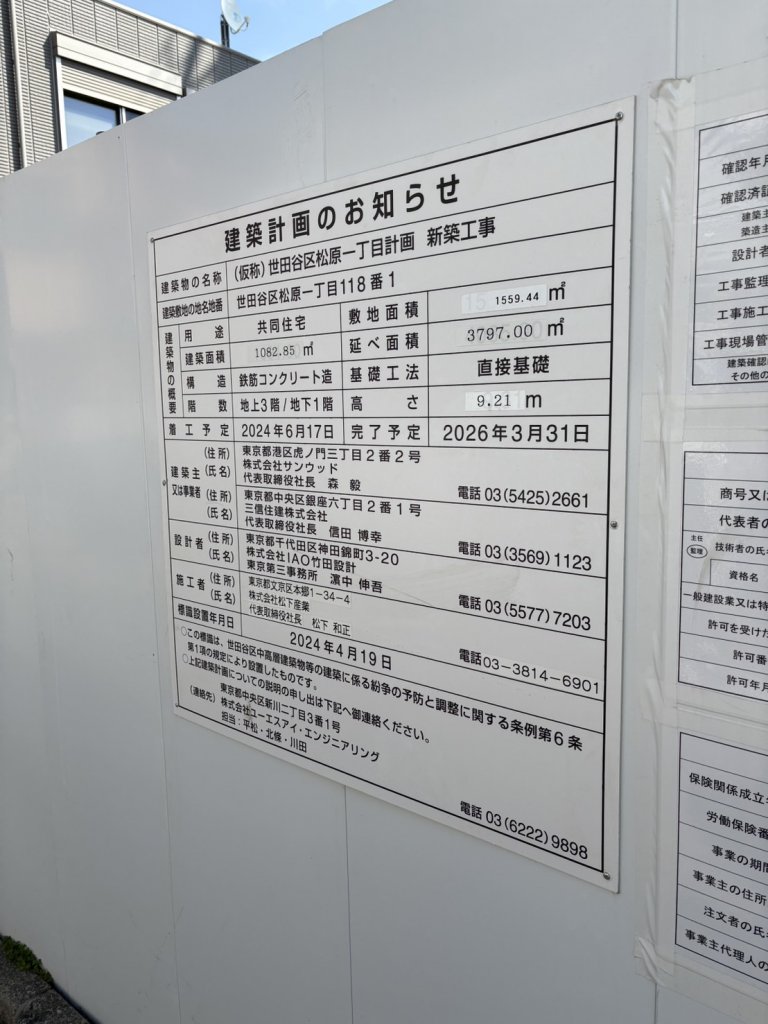 建築計画のお知らせ
建築物の名称 (仮称)世田谷区松原一丁目計画 新築工事
建築敷地の地名地番 世田谷区松原一丁目118番1
建築物の概要
用途 共同住宅 敷地面積 1559.44㎡
建築面積 1082.85㎡ 延べ面積 3797.00㎡
構造 鉄筋コンクリート造 基礎工法 直接基礎
階数 地上3階/地下1階 高さ 9.21m
着工予定 2024年6月17日 完了予定 2026年3月31日
建築主又は事業者
(住所) 東京都港区虎ノ門三丁目2番2号
(氏名) 株式会社サンウッド
代表取締役社長 森 毅 電話 03(5425)2661
(住所) 東京都中央区銀座六丁目2番1号
(氏名) 三信住建株式会社
代表取締役社長 信田 博幸 電話 03(3569)1123
設計者 (住所) 東京都千代田区神田錦町3-20
(氏名) 株式会社IAO竹田設計
東京第三事務所 濱中 伸吾 電話 03(5577)7203
施工者 (住所) 東京都文京区本郷1-34-4
(氏名) 株式会社松下産業
代表取締役社長 松下 和正 電話03-3814-6901
標識設置年月日 2024年4月19日
○この標識は、世田谷区中高層建築物等の建築に係る紛争の予防と調整に関する条例第6条
第1項の規定により設置したものです。
○上記建築計画についての説明の申し出は下記へ御連絡ください。
(連絡先) 東京都中央区新川二丁目3番1号
株式会社ユーエスアイ・エンジニアリング
担当:平松・北條・川田 電話 03(6222)9898
確認年月
確認済証
建築主
築造主
設計者
工事監理
工事施工
工事現場管
建築確認
その他の
商号又は
代表者の
主任
監理
技術者の氏
資格名
一般建設業又は特
許可を受けた
許可番
許可年月
保険関係成立
労働保険番
事業の期間
事業主の住所
注文者の氏
事業主代理人の